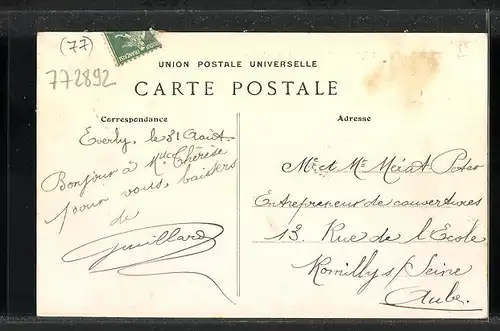 (77)
772892
UNION POSTALE UNIVERSELLE
CARTE POSTALE
Correspondance
Adresse
Everly, le 31 Août
Bonjour à Mlle Thérèse
pour vous, baisers
de
Guillard
Mr et Me Mérat
Entrepreneur de couvertures
13. Rue de l'Ecole
Romilly s/ Seine
Aube.